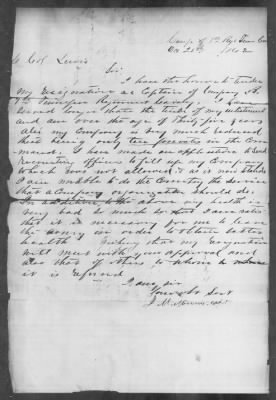 Camp of 7th Regt Tenn Cav
Oct 25th 1862
Col Lewis
Sir
I have the honor to tender
my resignation as Captain of Company A.
7th Tennessee Regiment Cavalry. I have
served longer than the trade of my enlistment
and am over the age of Thirty five years
Also my Company is very much reduced
their being only ten present in the Com
mand. I have made an application to send
Recruiting officers to fill up my Company
which was not allowed & as it now stands
I am unable to do the Country the service
that a Company organization should do.
In addition to the above my health is
very bad so much so that
that it is necessary for me to leave
the army in order to obtain better
health Hoping that my resignation
will meet with your approval and
also that of others to whom
it is referred
I am, sir
Your Obt Servt
J. M.